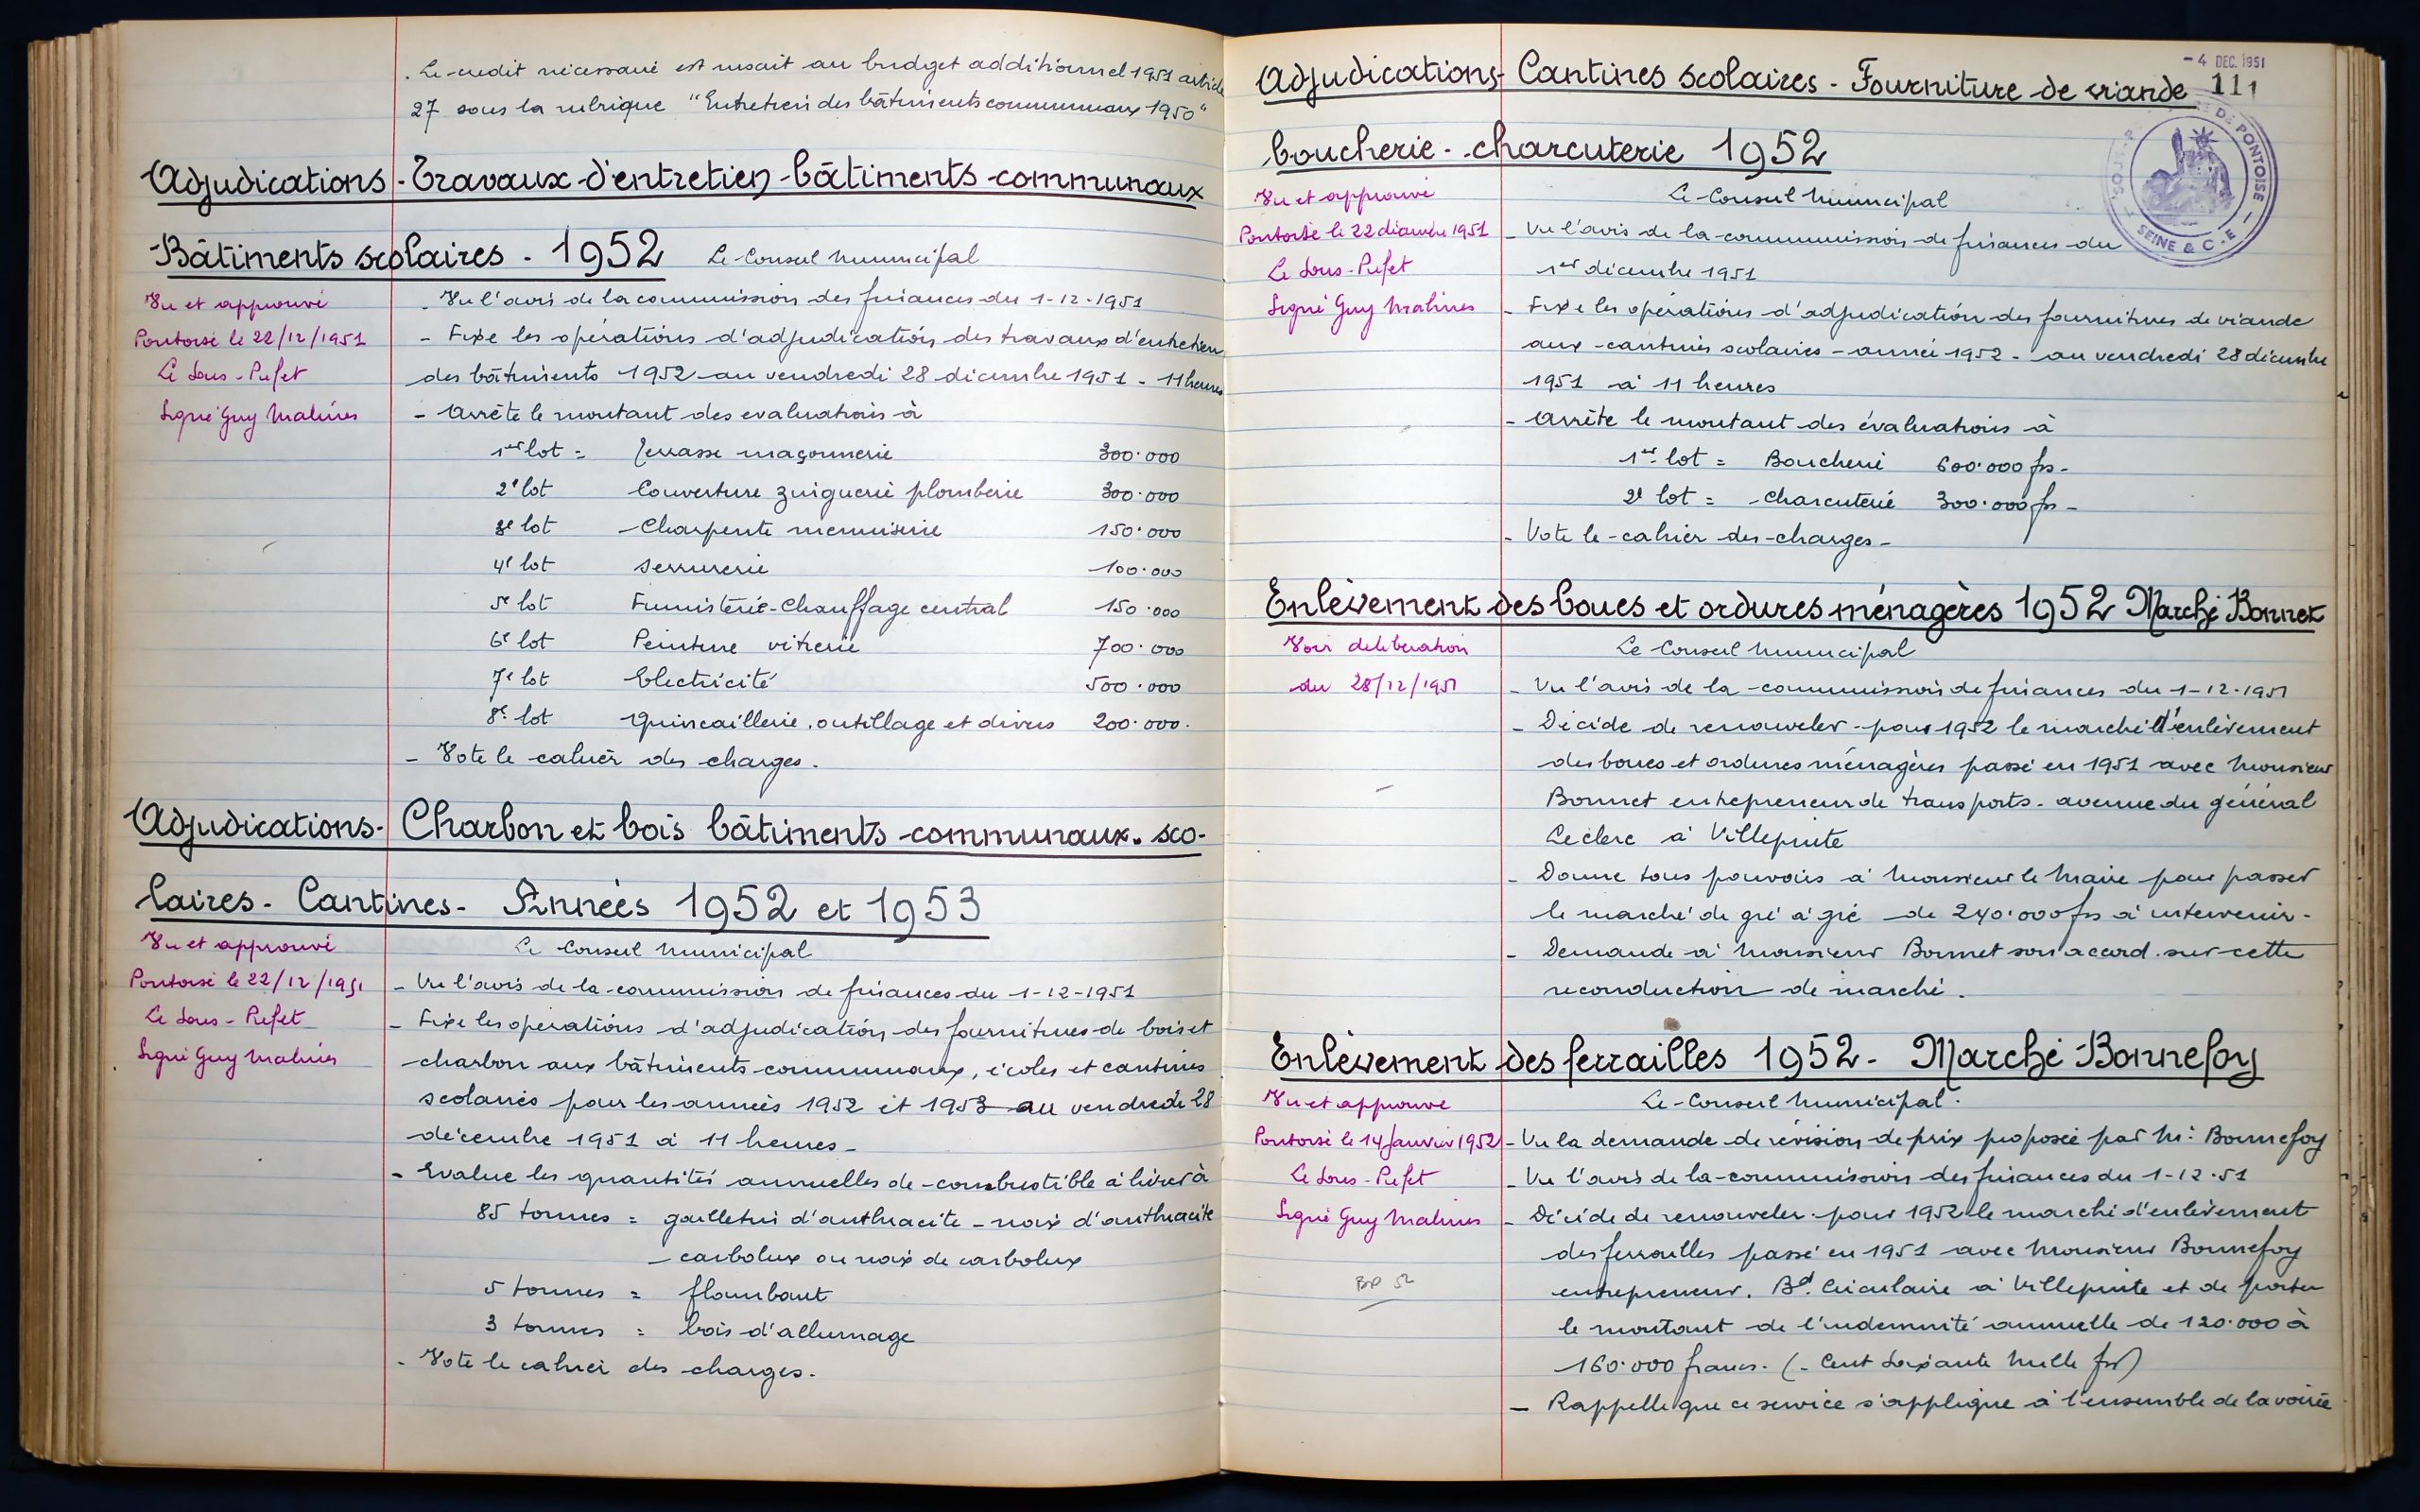 . Le crédit nécessaire est inscrit au budget additionnel 1951 article
27 sous la rubrique "Entretien des bâtiments communaux 1950"
Adjudications - Travaux d'entretien - bâtiments communaux
Bâtiments scolaires - 1952
Le Conseil Municipal
Vu et approuvé
Pontoise le 22/12/1951
Le Sous-Préfet
Signé Guy Malines
- Vu l'avis de la commission des finances du 1-12-1951
- Fixe les opérations d'adjudication des travaux d'entretien
des bâtiments 1952 au vendredi 28 décembre 1951 - 11 heures
- Arrête le montant des évaluations à
1er lot = Terrasse maçonnerie 300.000
2e lot Couverture zinguerie plomberie 300.000
3e lot Charpente menuiserie 150.000
4e lot Serrurerie 100.000
5e lot Fumisterie-Chauffage central 150.000
6e lot Peinture vitrerie 700.000
7e lot Electricité 500.000
8e lot Quincaillerie, outillage et divers 200.000.
- Vote le cahier des charges.
Adjudications - Charbon et bois bâtiments communaux. sco-
laires - Cantines - Années 1952 et 1953
Vu et approuvé
Pontoise le 22/12/1951
Le Sous-Préfet
Signé Guy Malines
Le Conseil Municipal
- Vu l'avis de la commission de finances du 1-12-1951
- Fixe les opérations d'adjudication des fournitures de bois et
charbon aux bâtiments communaux, écoles et cantines
scolaires pour les années 1952 et 1953 au vendredi 28
décembre 1951 à 11 heures -
- Evalue les quantités annuelles de combustible à livrer à
85 tonnes = gailletin d'anthracite - noix d'anthracite
- carbolux ou noix de carbolux
5 tonnes = flambant
3 tonnes = bois d'allumage
- Vote le cahier des charges.
- 4 DEC. 1951
111
Adjudications - Cantines scolaires - Fourniture de viande
boucherie - charcuterie 1952
DE PONTOISE
SEINE & O-E
Vu et approuvé
Pontoise le 22 décembre 1951
Le Sous-Préfet
Signé Guy Malines
Le Conseil Municipal
- Vu l'avis de la commission de finances du
1er décembre 1951
- Fixe les opérations d'adjudication des fournitures de viande
aux cantines scolaires - année 1952 - au vendredi 28 décembre
1951 à 11 heures
- Arrête le montant des évaluations à
1er lot = Boucherie 600.000 frs -
2e lot = Charcuterie 300.000 frs -
- Vote le cahier des charges -
Enlèvement des boues et ordures ménagères 1952 Marché Bonnet
Voir délibération
du 28/12/1951
Le Conseil Municipal
- Vu l'avis de la commission de finances du 1-12-1951
- Décide de renouveler pour 1952 le marché d'enlèvement
des boues et ordures ménagères passé en 1951 avec Monsieur
Bonnet entrepreneur de transports - avenue du général
Leclerc à Villepinte
- Donne tous pouvoirs à Monsieur le Maire pour passer
le marché de gré à gré de 240.000 frs à intervenir -
- Demande à Monsieur Bonnet son accord sur cette
reconduction de marché.
Enlèvement des ferrailles 1952 - Marché Bonnefoy
Vu et approuvé
Pontoise le 14 Janvier 1952
Le Sous-Préfet
Signé Guy Malines
BP 52
Le Conseil Municipal.
- Vu la demande de révision de prix proposée par Mr Bonnefoy
- Vu l'avis de la commission des finances du 1-12-51
- Décide de renouveler pour 1952 le marché d'enlèvement
des ferrailles passé en 1951 avec Monsieur Bonnefoy
entrepreneur, Bd Circulaire à Villepinte et de porter
le montant de l'indemnité annuelle de 120.000 à
160.000 francs. (- Cent Soixante Mille frs)
- Rappelle que ce service s'applique à l'ensemble de la voirie